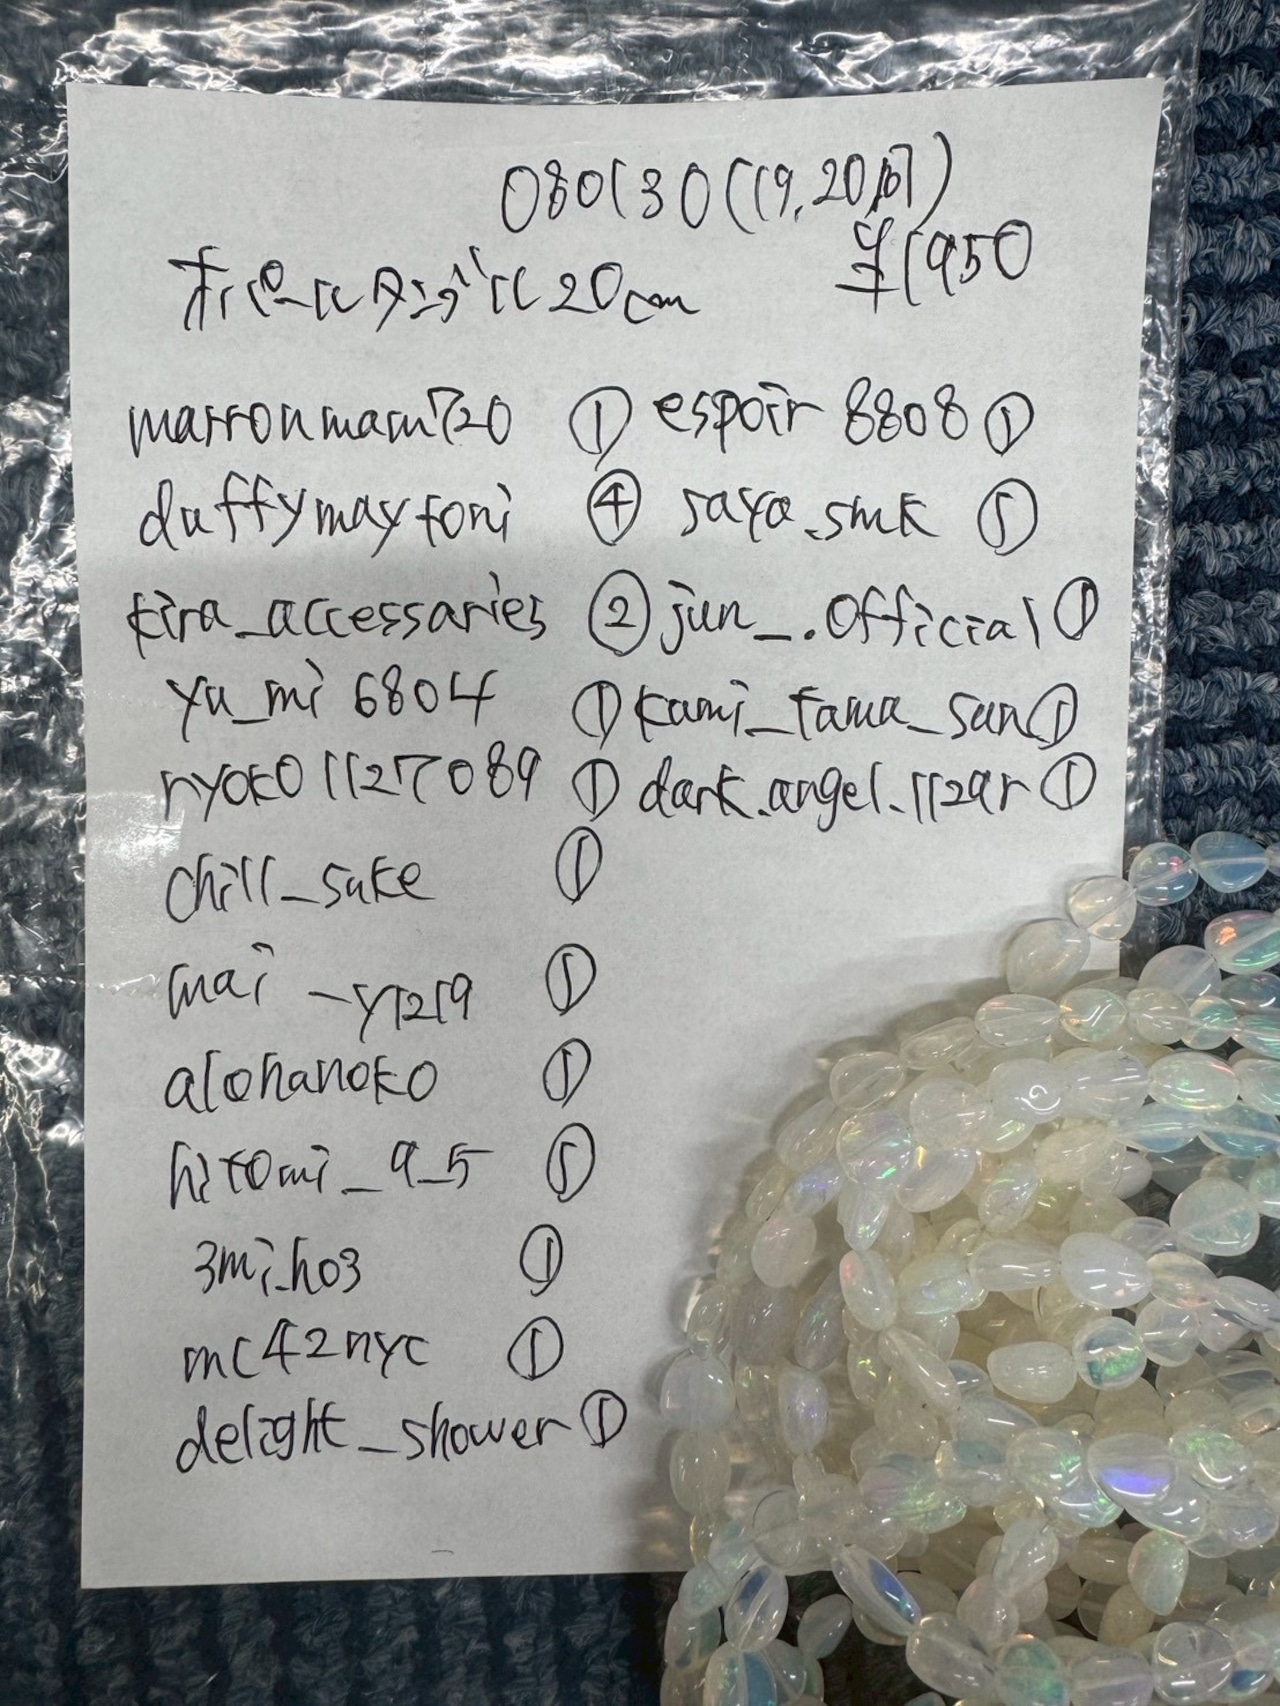 080130(19.20時)
¥1950
オパールタンブル20cm
marronmam720 ① espoir8808 ①
duffymaytoni ④ saya.smk ①
kira_accessaries ② jun_.official ①
yu_mi6804 ① kami_tama_san ①
ryoko1127089 ① dark.angel.1129r ①
chill_sake ①
mai_y1219 ①
alohanoko ①
hitomi_9_5 ①
3mi.ho3 ①
mc42nyc ①
delight_shower ①